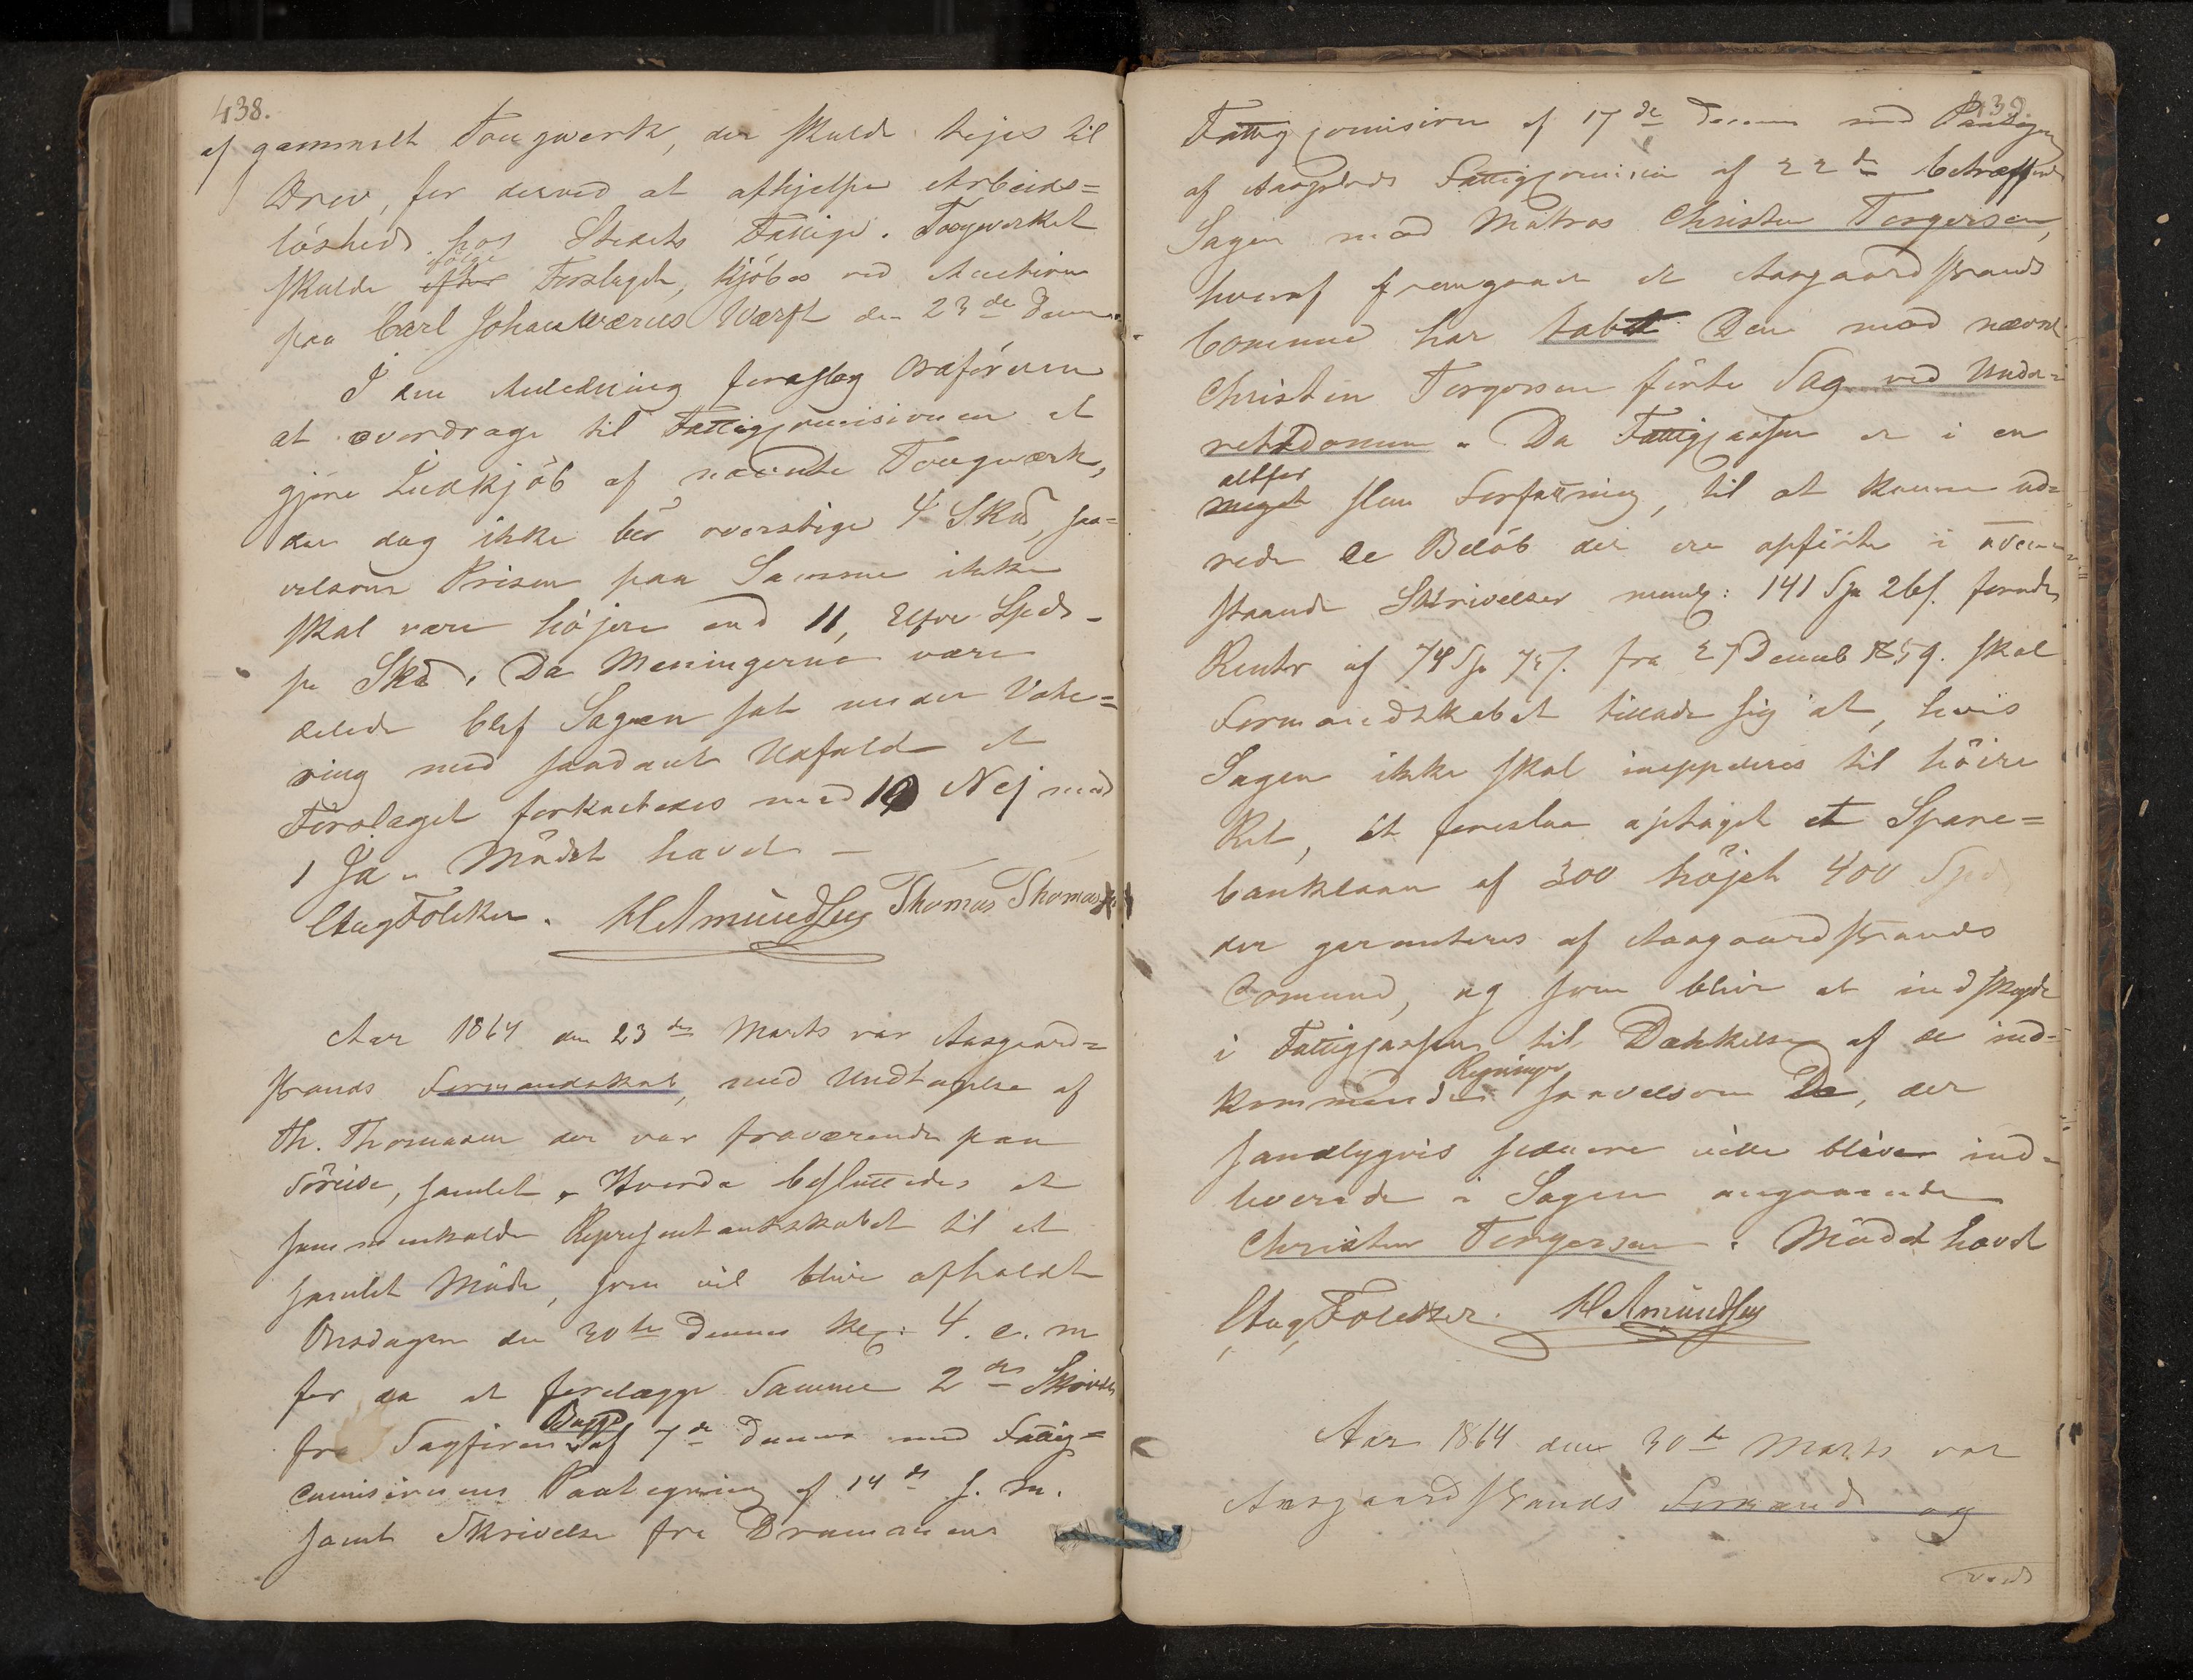 438.
af gammelt Tougwerk, der skulde hejes til
Drev, for derved at afhjelpe Arbeids=
löshed hos Stedets Fattige. Tougwerket
ifölge
skulde efter Forslaget, kjöbes ved Auction
paa Carl Johansværns Værft den 23de Dennes.
I den Anledning foreslog Ordföreren
at overdrage til Fattigcomisionen at
gjöre Indkjöb af nævnte Tougværk,
der dog ikke bör overstige 4 Skd, saa=
velsom Prisen paa Samme ikke
skal være höjere end 11, Elleve Spd
pr Skd. Da Meningerne vare
deelede blef Sagen sat under Vote=
ring med saadant Udfald at
Forslaget forkastedes med 10 Nej mod
1 Ja. Mödet hævet
Aug Fölcker. HAmundsen Thomas Thomas
Aar 1864 den 23de Marts var Aasgaard=
strands Formandskab, med Undtagelse af
Th. Thomasen der var fraværende paa
Söreise, samlet. Hvorda besluttedes at
sammenkalde Representantskabet til et
samlet Möde, som vil blive afholdt
Onsdagen den 30te Dennes Kl: 4. e. m
for da at forelægge Samme 2de Skrivelser
Bugge
fra Sagförer af 7de Dennes med Fattig=
comisionens Paategning af 14de s. m.
samt Skrivelse fra Drammens
439.
Fattigcomision af 17de Dennes med Paategn
af Aasgstrds Fattigcomision af 22de betræffende
Sagen mod Matros Christen Torgersen,
hvoraf fremgaar at Aasgaardstrands
Comunne har tabt Den mod nævnte
Christen Torgersen förte Sag ved Under=
retsdommen. Da Fattigcassen er i en
altfor
meget slem Forfatning, til at kunne ud=
rede de Belöb der ere opförte i oven=
staaende Skrivelser nemlig: 141 Sp 26s. foruden
Renter af 74 Sp 75s. fra 27 Decemb 1859. skal
Formandskabet tillade sig at, hvis
Sagen ikke skal inappeleres til höiere
Ret, at foreslaa optaget et Spare=
banklaan af 300 höjst 400 Spd
der garanteres af Aasgaardstrands
Comune, og som bliver at indskyde
i Fattigcassen til Dækkelse af de ind=
Regninger
kommende saavelsom De, der
sandlygvis sednere ville bliver ind=
leverede i Sagen angaaende
Christen Torgersen. Mödet hævet
Aug Fölcker. HAmundsen
Aar 1864 den 30te Marts var
Aasgaardstrands Formands og